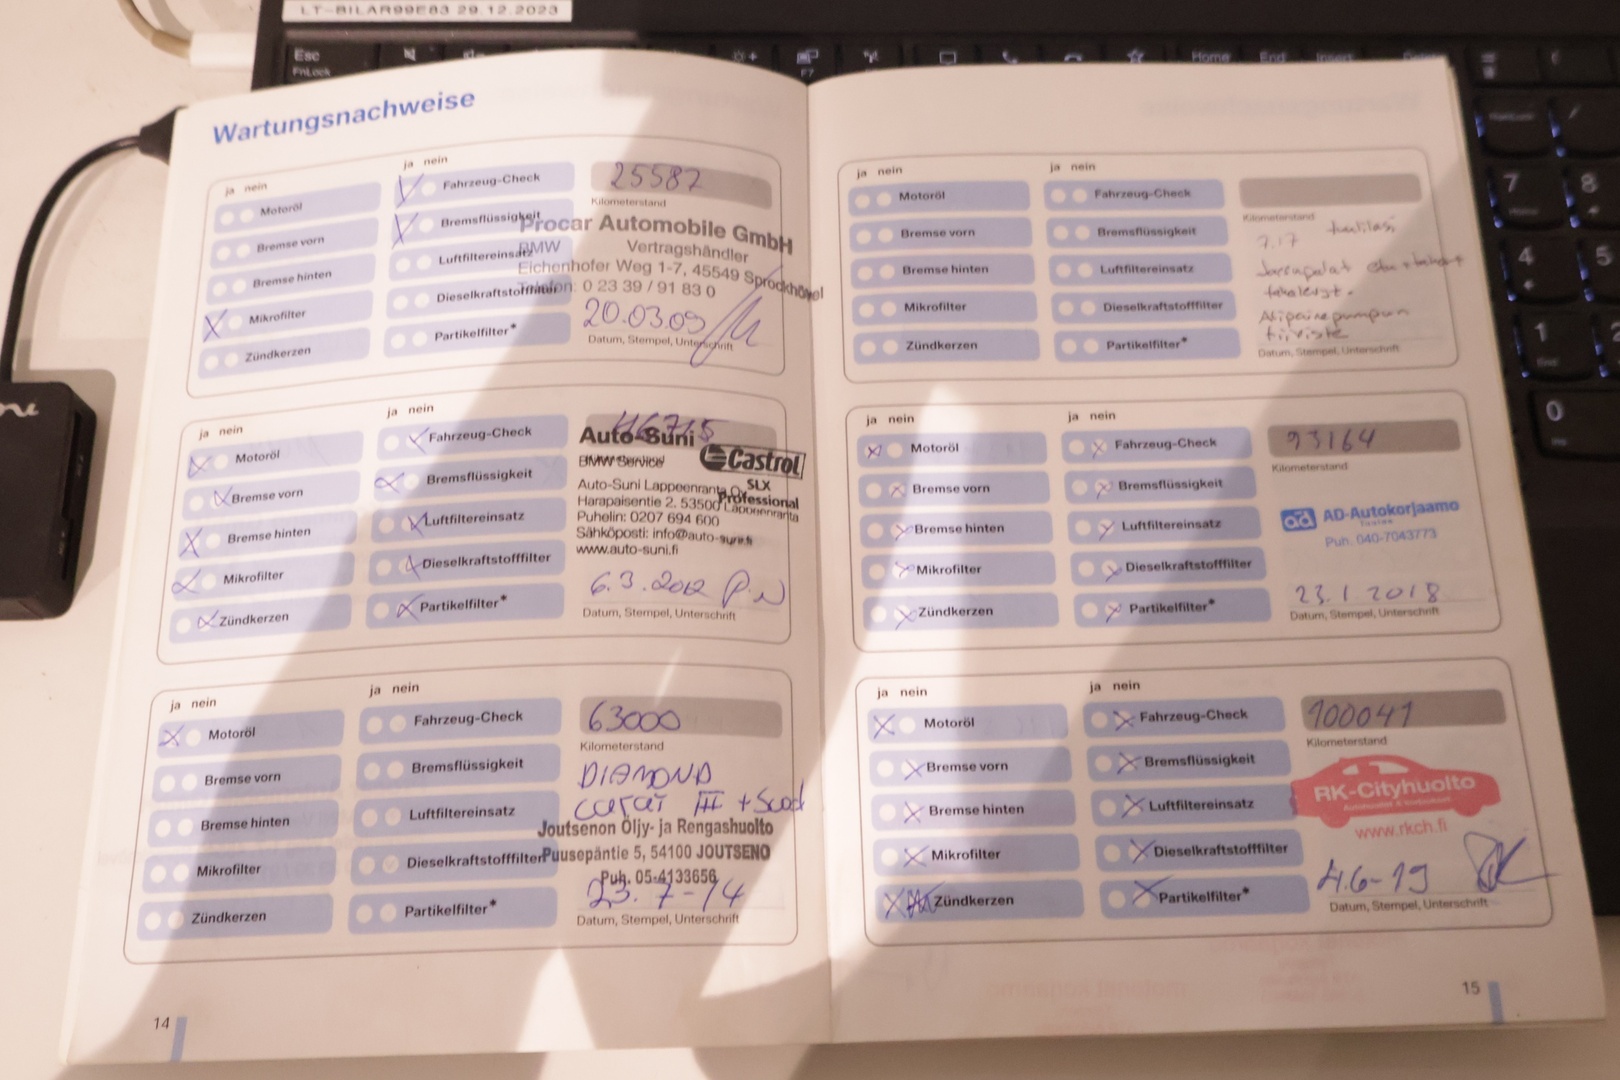 LT-BILAR99E83 29.12.2023
Esc
FnLock
F7
Home
End
Insert
Delete
7
8
4
5
1
2
0
Wartungsnachweise
ja nein
Motoröl
Bremse vorn
Bremse hinten
Mikrofilter
Zündkerzen
ja nein
Fahrzeug-Check
Bremsflüssigkeit
Luftfiltereinsatz
Dieselkraftstofffilter
Partikelfilter*
25587
Kilometerstand
Procar Automobile GmbH
BMW Vertragshändler
Eichenhofer Weg 1-7, 45549 Sprockhövel
Telefon: 0 23 39 / 91 83 0
20.03.09
Datum, Stempel, Unterschrift
ja nein
Motoröl
Bremse vorn
Bremse hinten
Mikrofilter
Zündkerzen
ja nein
Fahrzeug-Check
Bremsflüssigkeit
Luftfiltereinsatz
Dieselkraftstofffilter
Partikelfilter*
46715
Auto-Suni
BMW Service
Castrol
SLX
Professional
Auto-Suni Lappeenranta Oy
Harapaisentie 2, 53500 Lappeenranta
Puhelin: 0207 694 600
Sähköposti: info@auto-suni.fi
www.auto-suni.fi
6.3.2012
Datum, Stempel, Unterschrift
ja nein
Motoröl
Bremse vorn
Bremse hinten
Mikrofilter
Zündkerzen
ja nein
Fahrzeug-Check
Bremsflüssigkeit
Luftfiltereinsatz
Dieselkraftstofffilter
Partikelfilter*
63000
Kilometerstand
DIAMOND
Joutsenon Öljy- ja Rengashuolto
Puusepäntie 5, 54100 JOUTSENO
Puh. 05-4133656
23.7-14
Datum, Stempel, Unterschrift
14
ja nein
Motoröl
Bremse vorn
Bremse hinten
Mikrofilter
Zündkerzen
ja nein
Fahrzeug-Check
Bremsflüssigkeit
Luftfiltereinsatz
Dieselkraftstofffilter
Partikelfilter*
Kilometerstand
7.17
Jarrupalat
tiiviste
Datum, Stempel, Unterschrift
ja nein
Motoröl
Bremse vorn
Bremse hinten
Mikrofilter
Zündkerzen
ja nein
Fahrzeug-Check
Bremsflüssigkeit
Luftfiltereinsatz
Dieselkraftstofffilter
Partikelfilter*
93164
Kilometerstand
ad AD-Autokorjaamo
Puh. 040-7043773
23.1.2018
Datum, Stempel, Unterschrift
ja nein
Motoröl
Bremse vorn
Bremse hinten
Mikrofilter
Zündkerzen
ja nein
Fahrzeug-Check
Bremsflüssigkeit
Luftfiltereinsatz
Dieselkraftstofffilter
Partikelfilter*
100041
Kilometerstand
RK-Cityhuolto
www.rkch.fi
4.6-19
Datum, Stempel, Unterschrift
15